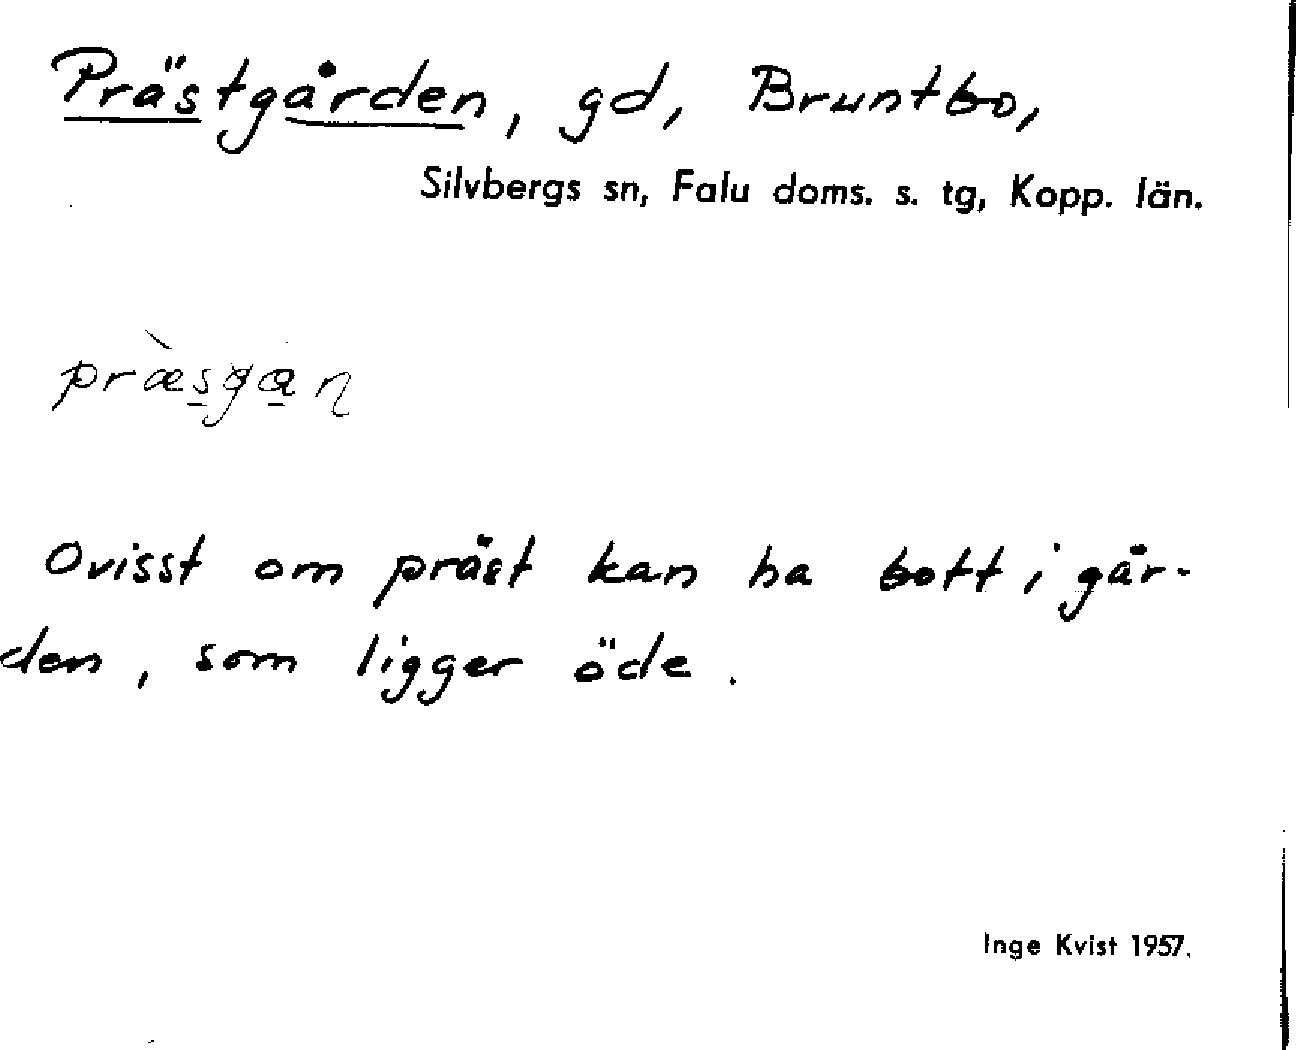 Prästgården, gd, Bruntbo,
Silvbergs sn, Falu doms. s. tg, Kopp. län.
præ̀sgaɳ
Ovisst om präst kan ha bott i går-
den, som ligger öde.
Inge Kvist 1957.